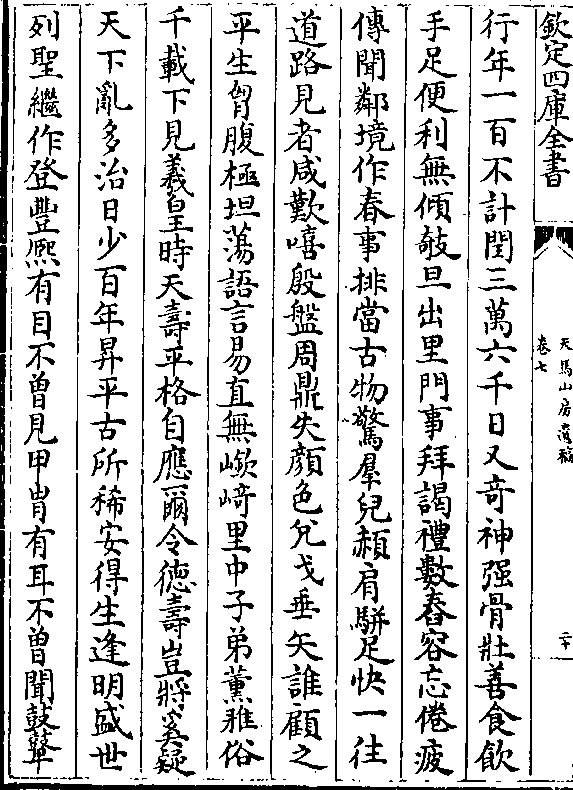 欽定四庫全書
天馬山房遺稿
卷七
二十
行年一百不計閏三萬六千日又竒神强骨壯善食飲
手足便利無傾攲旦出里門事拜謁禮數舂容忘倦疲
傳聞鄰境作春事排當古物驚羣兒頳肩駢足快一往
道路見者咸歎嘻殷盤周鼎失顔色兊戈垂矢誰顧之
平生胷腹極坦蕩語言易直無嶔﨑里中子弟薰雅俗
千載下見羲皇時天壽平格自應爾令德壽豈將奚疑
天下亂多治日少百年昇平古所稀安得生逢明盛世
列聖繼作登豐熈有目不曽見甲胄有耳不曽聞鼓鼙